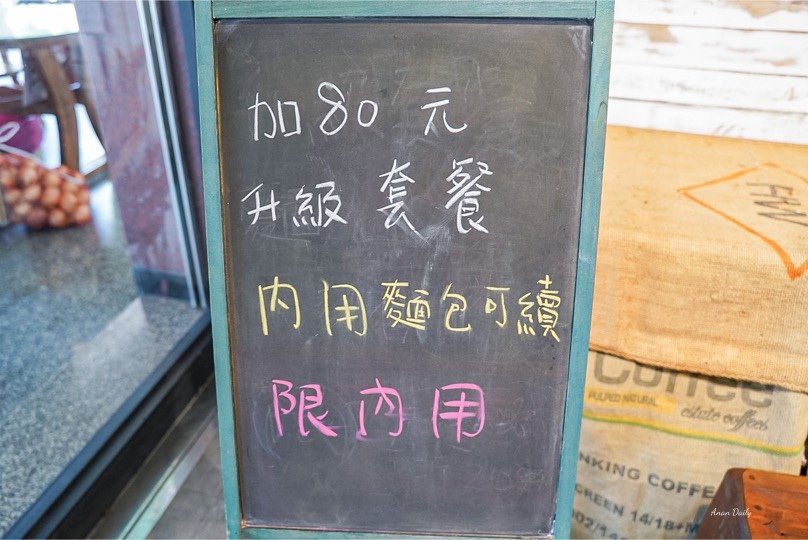 加80 元
升級 套餐
內用麵包可續
限內用
Coffee
PULPED NATURAL
estate coffees
NKING COFFE
CREEN 14/18+M
002/1
Anan Daily